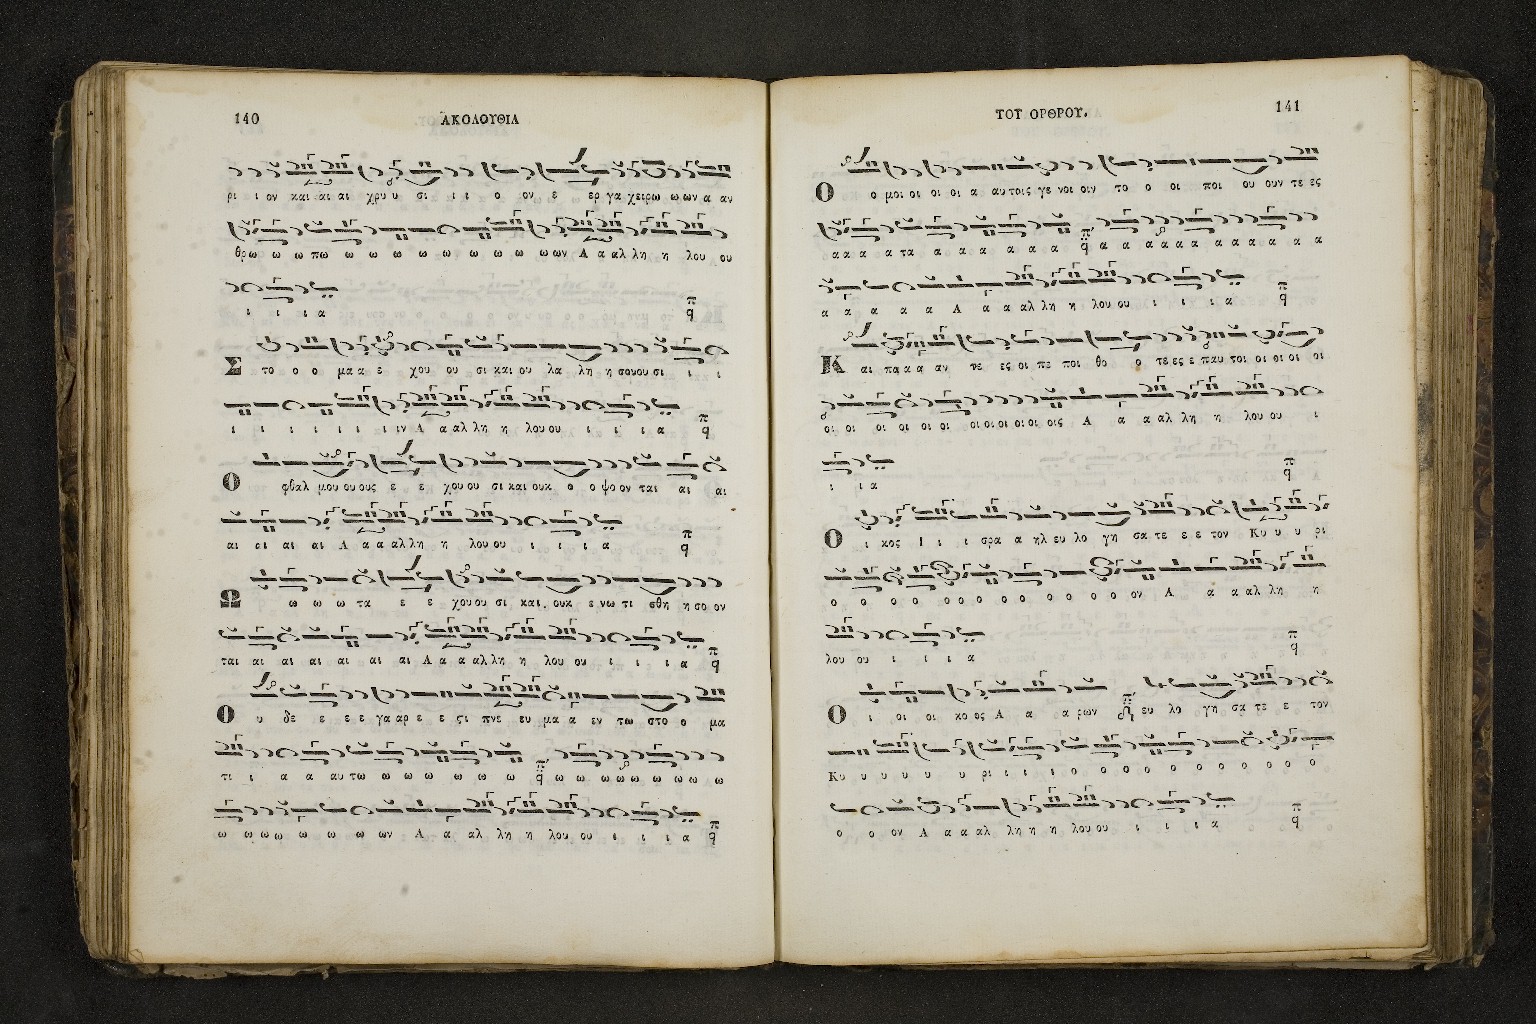 140
ΑΚΟΛΟΥΘΙΑ
ρι ι ον και αι αι χρυ υ σι ι ι ο ον ε ερ γα χειρω ω ων α αν
θρω ω ω πω ω ω ω ω ω ω ω ω ων Α α αλ λη η λου ου
ι ι ι α
Σ το ο ο μα α ε χου ου σι και ου λα λη η σουου σι ι ι
ι ι ι ι ι ι ιν Α α αλ λη η λου ου ι ι ι α
Ο φθαλ μου ου ους ε ε χου ου σι και ουκ ο ο ψο ον ται αι αι
αι αι αι αι Α α α αλ λη η λου ου ι ι ι α
Ω ω ω ω τα ε ε χου ου σι και ουκ ε νω τι σθη η σο ον
ται αι αι αι αι αι αι Α α α αλ λη η λου ου ι ι ι α
Ο υ δε ε ε ε γα αρ ε ε στι πνε ευ μα α εν τω στο ο μα
τι ι α α αυ τω ω ω ω ω ω ω ω ω ω ω ω ω ω ω
ω ω ω ω ω ω ω ων Α α αλ λη η λου ου ι ι ι α
141
ΤΟΥ ΟΡΘΡΟΥ.
Ο ο μοι οι οι οι α αυ τοις γε νοι οιν το ο οι ποι ου ουν τε ες
α α α α τα α α α α α α α α α α α α α α α α
α α α α α Α α α αλ λη η λου ου ι ι ι α
Κ αι πα α α αν τε ες οι πε ποι θο ο τε ες ε παυ τοι οι οι οι οι
οι οι οι οι οι οι οι οι οι οι οι οις Α α α αλ λη η λου ου ι
ι ι α
Ο ι κος Ι ι ι σρα α ηλ ευ λο γη σα τε ε ε τον Κυ υ υ ρι
ο ο ο ο ο ο ο ο ο ο ο ο ον Α α α αλ λη η
λου ου ι ι ι α
Ο ι οι οι κο ος Α α α ρων ευ λο γη σα τε ε τον
Κυ υ υ υ υ υ ρι ι ι ι ο ο ο ο ο ο ο ο ο ο
ο ο ον Α α α αλ λη η η λου ου ι ι ι α